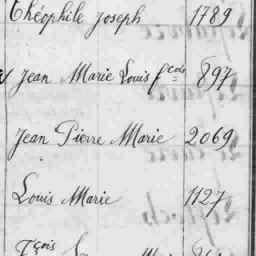 Théophile Joseph 1789
Jean Marie Louis fçois 897
Jean Pierre Marie 2069
Louis Marie 1127